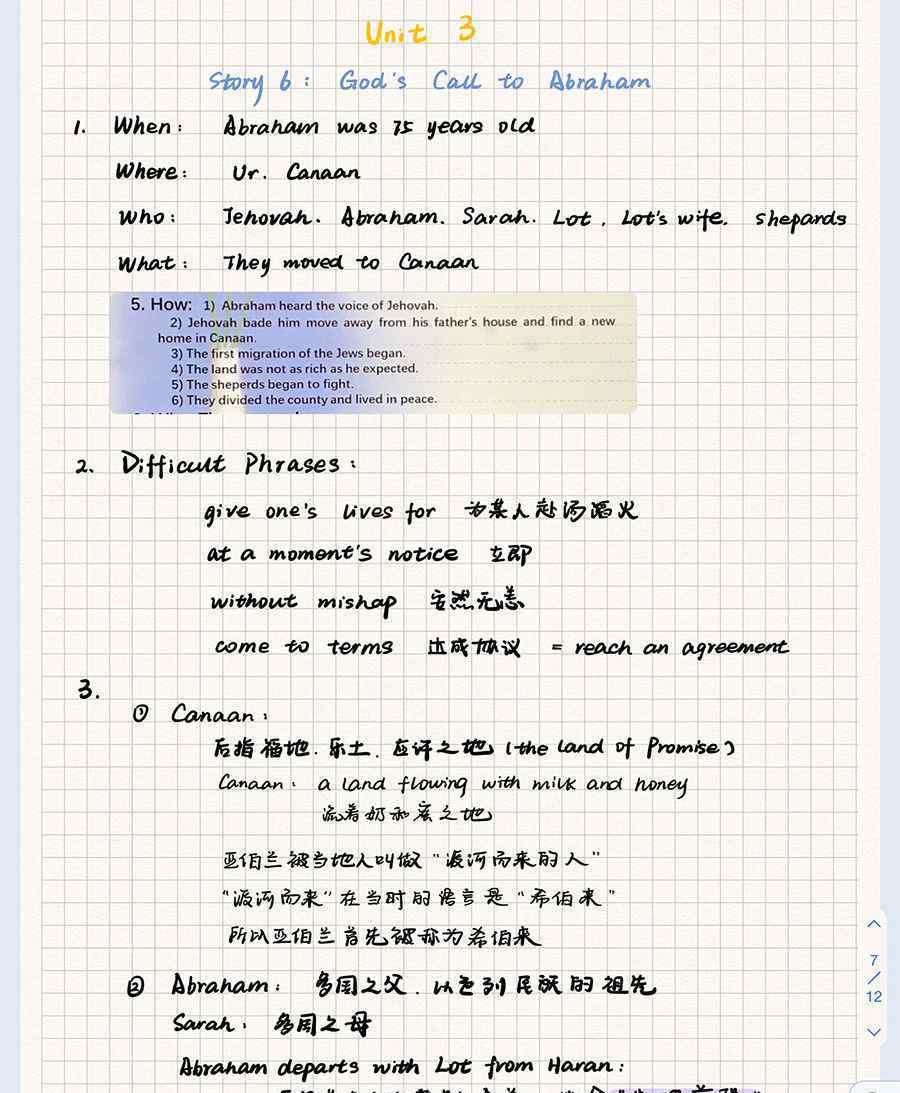 Unit 3
Story 6: God's Call to Abraham
1. When: Abraham was 75 years old
Where: Ur. Canaan
Who: Jehovah. Abraham. Sarah. Lot. Lot's wife. shepards
What: They moved to Canaan
5. How: 1) Abraham heard the voice of Jehovah.
2) Jehovah bade him move away from his father's house and find a new
home in Canaan.
3) The first migration of the Jews began.
4) The land was not as rich as he expected.
5) The sheperds began to fight.
6) They divided the county and lived in peace.
2. Difficult Phrases:
give one's lives for 为某人赴汤蹈火
at a moment's notice 立即
without mishap 安然无恙
come to terms 达成协议 = reach an agreement
3.
① Canaan:
后指福地.乐土.应许之地 (the land of Promise)
Canaan: a land flowing with milk and honey
流着奶和蜜之地
亚伯兰被当地人叫做“渡河而来的人”
“渡河而来”在当时的语言是“希伯来”
所以亚伯兰首先被称为希伯来
② Abraham: 多国之父.以色列民族的祖先
Sarah: 多国之母
Abraham departs with Lot from Haran:
7
/
12